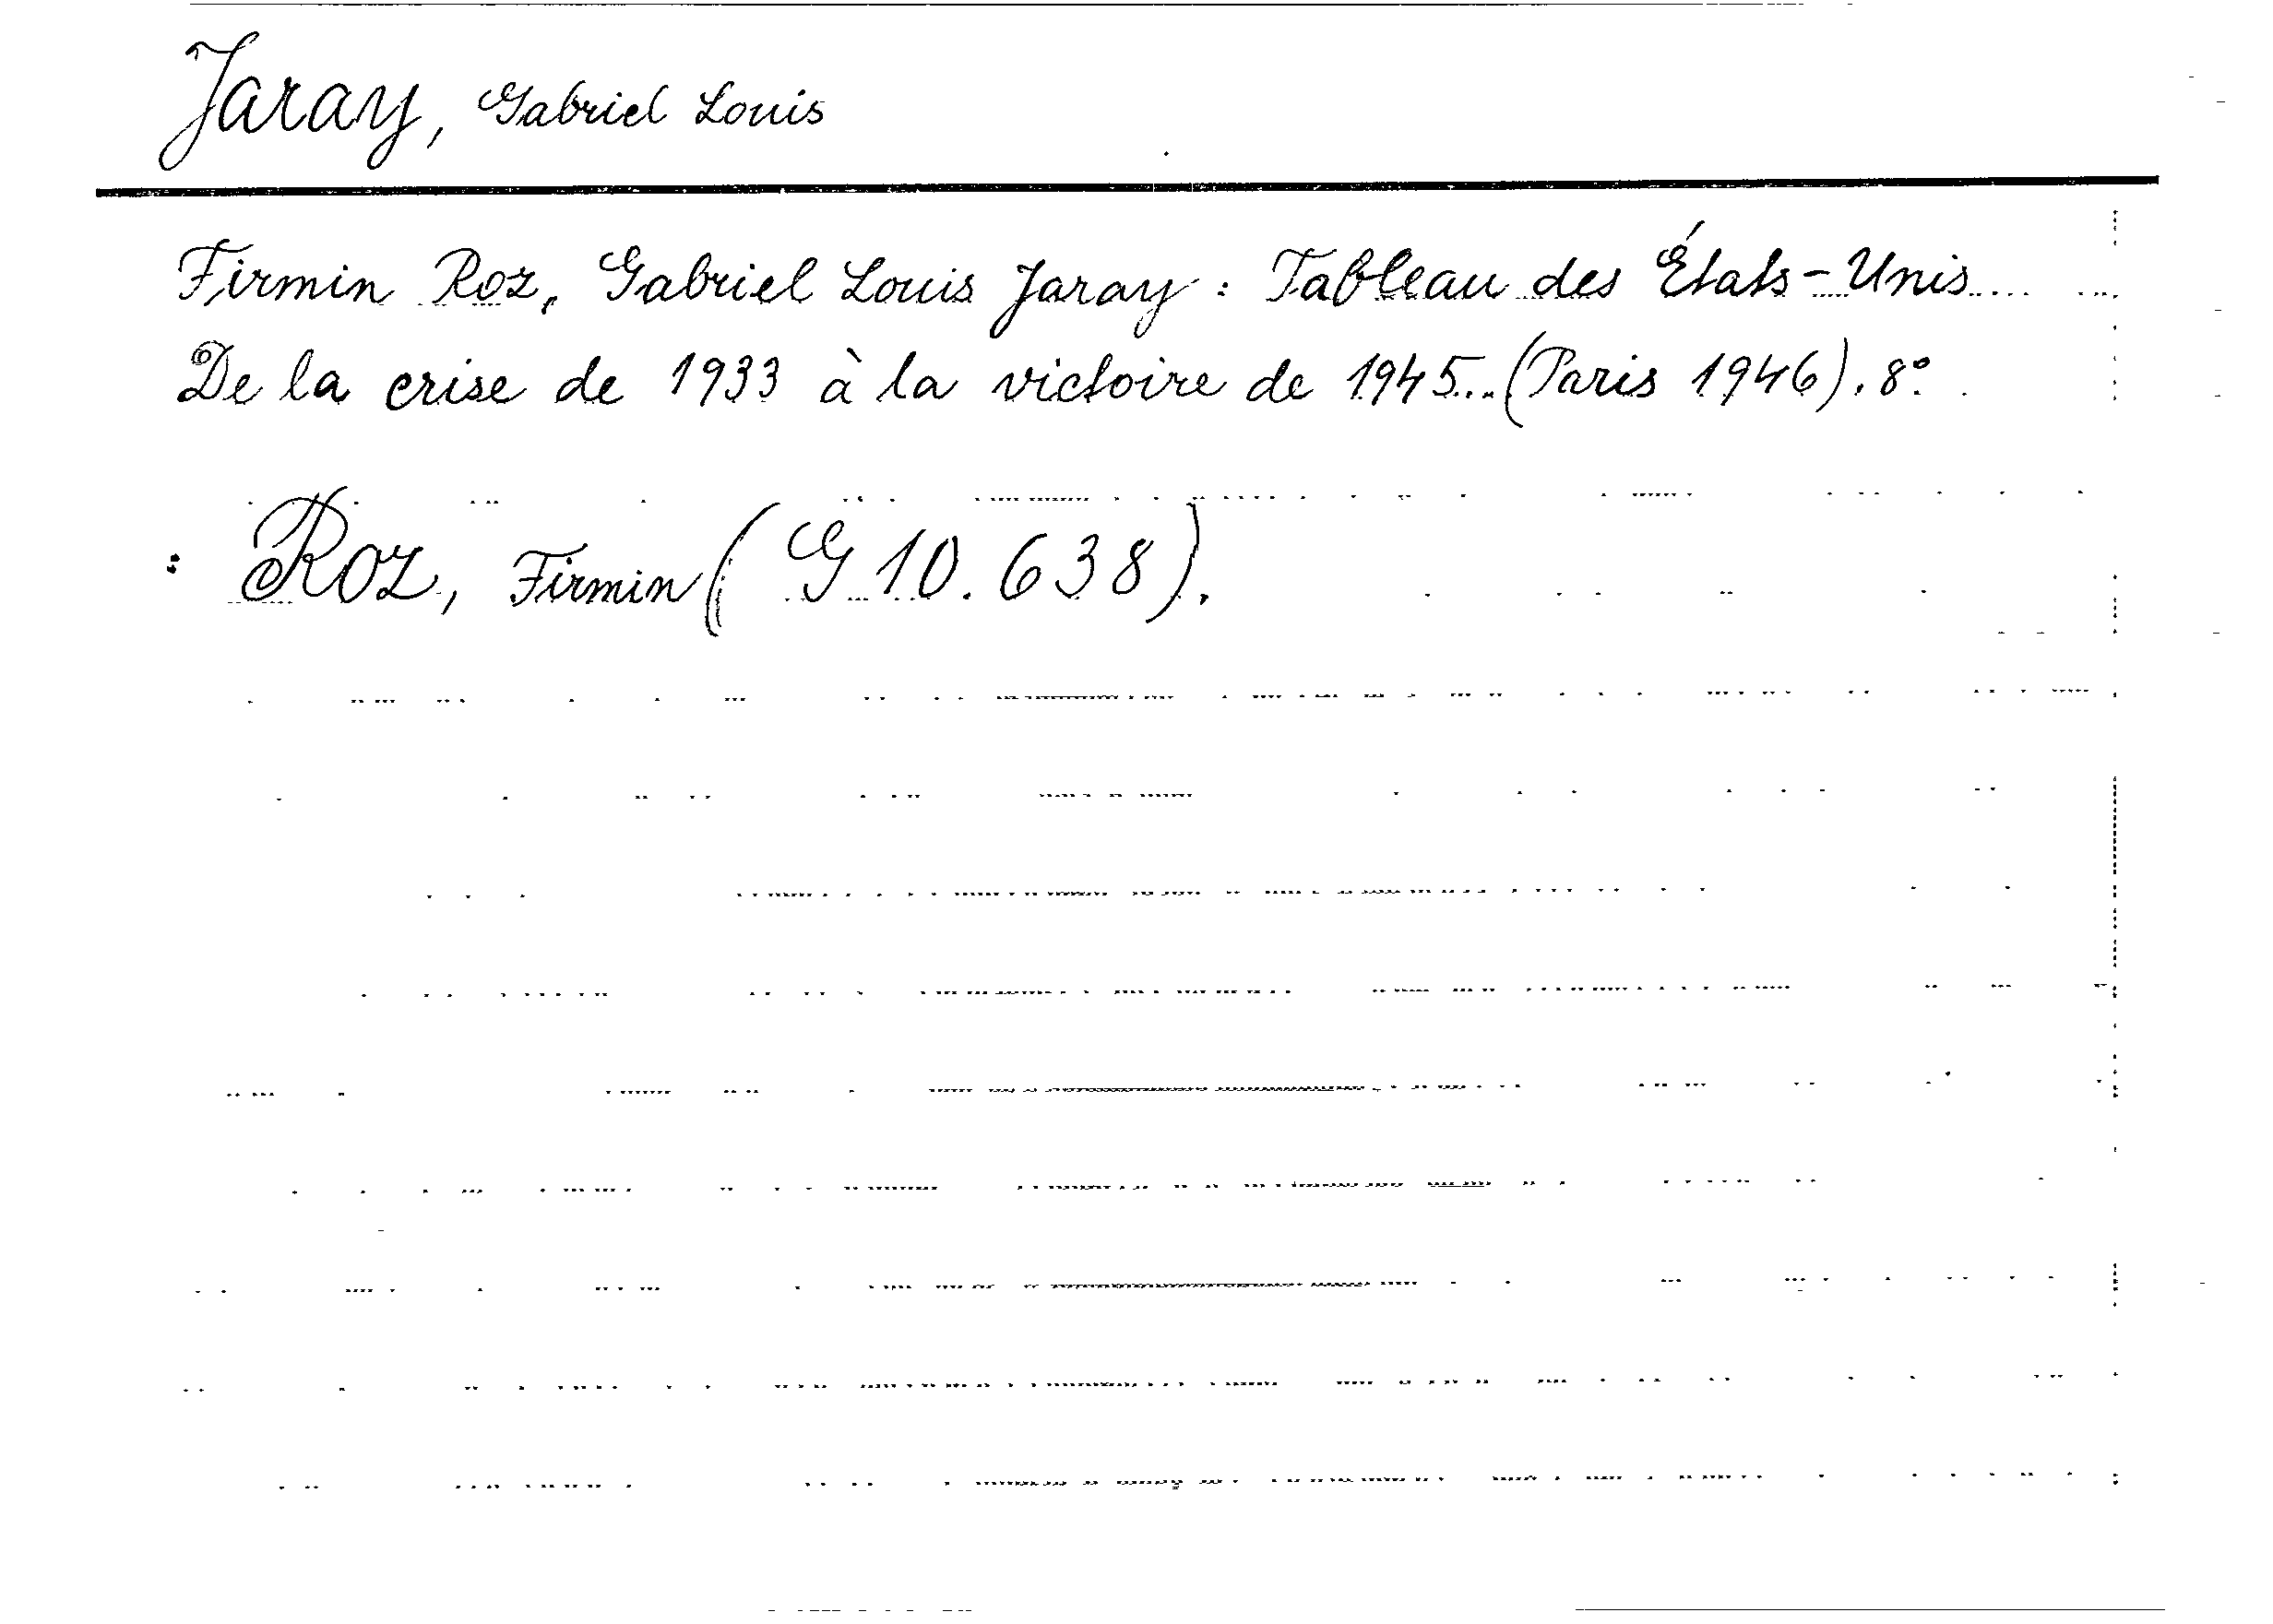 Jaray, Gabriel Louis
Firmin Roz, Gabriel Louis Jaray : Tableau des États-Unis
De la crise de 1933 à la victoire de 1945. (Paris 1946). 8°.
: Roz, Firmin (G 10.638).